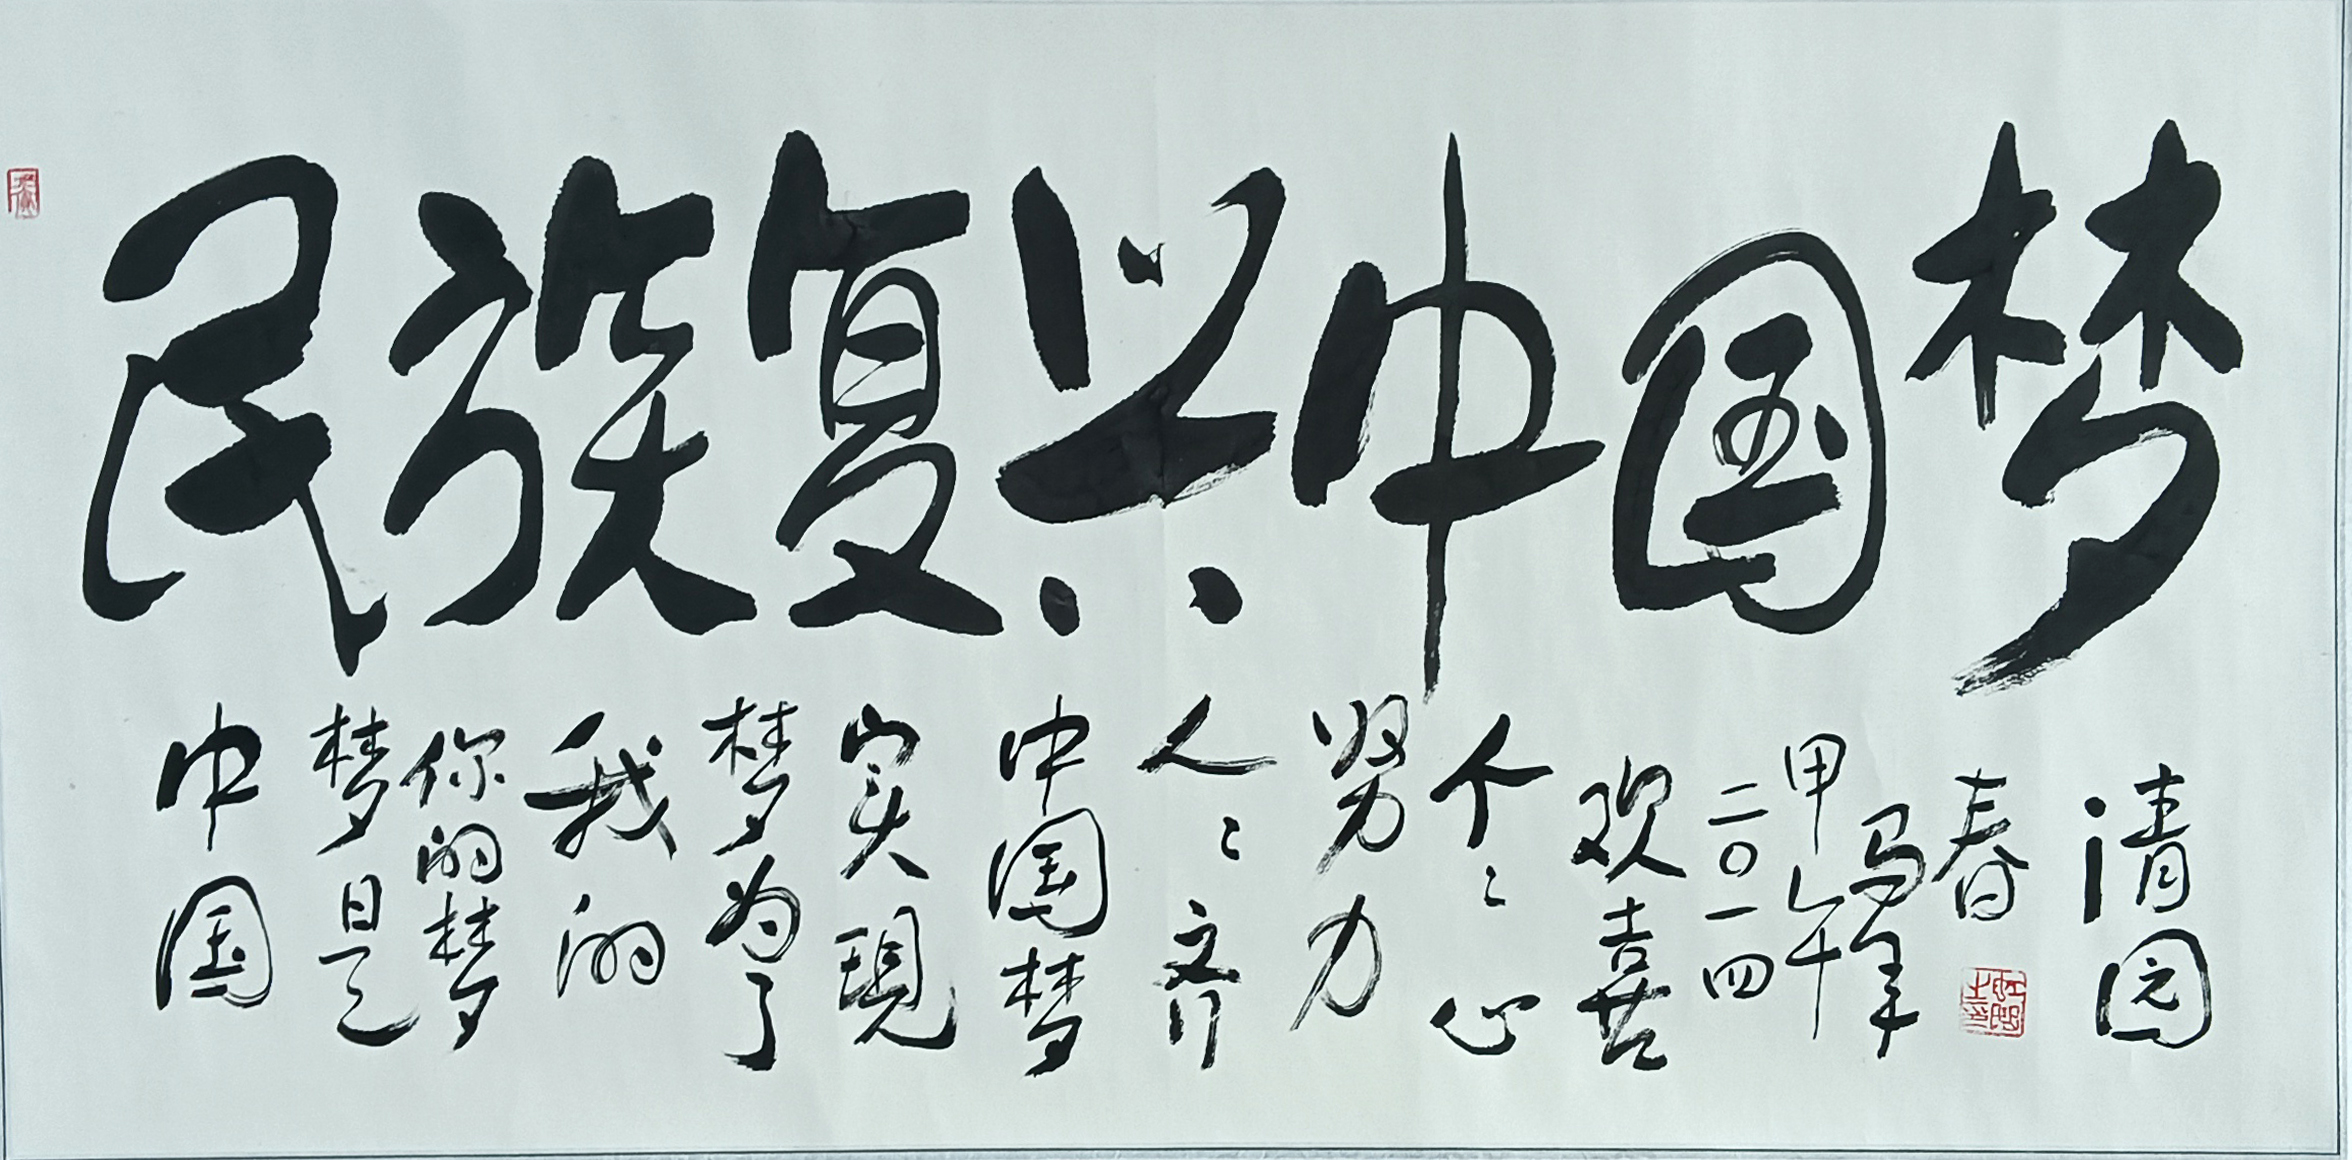 民族复兴中国梦
中国
梦是
你的梦
我的
梦为了
实现
中国梦
人人齐
努力
个个心
欢喜
二〇一四
甲午
马年
春
清园